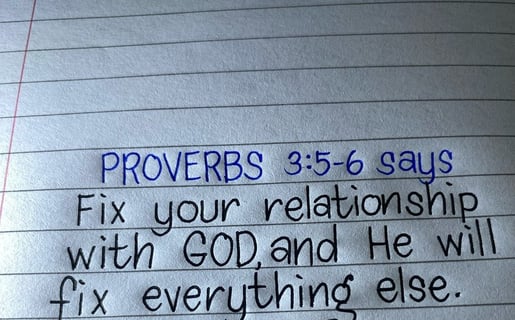 PROVERBS 3:5-6 says
Fix your relationship
with GOD, and He will
fix everything else.